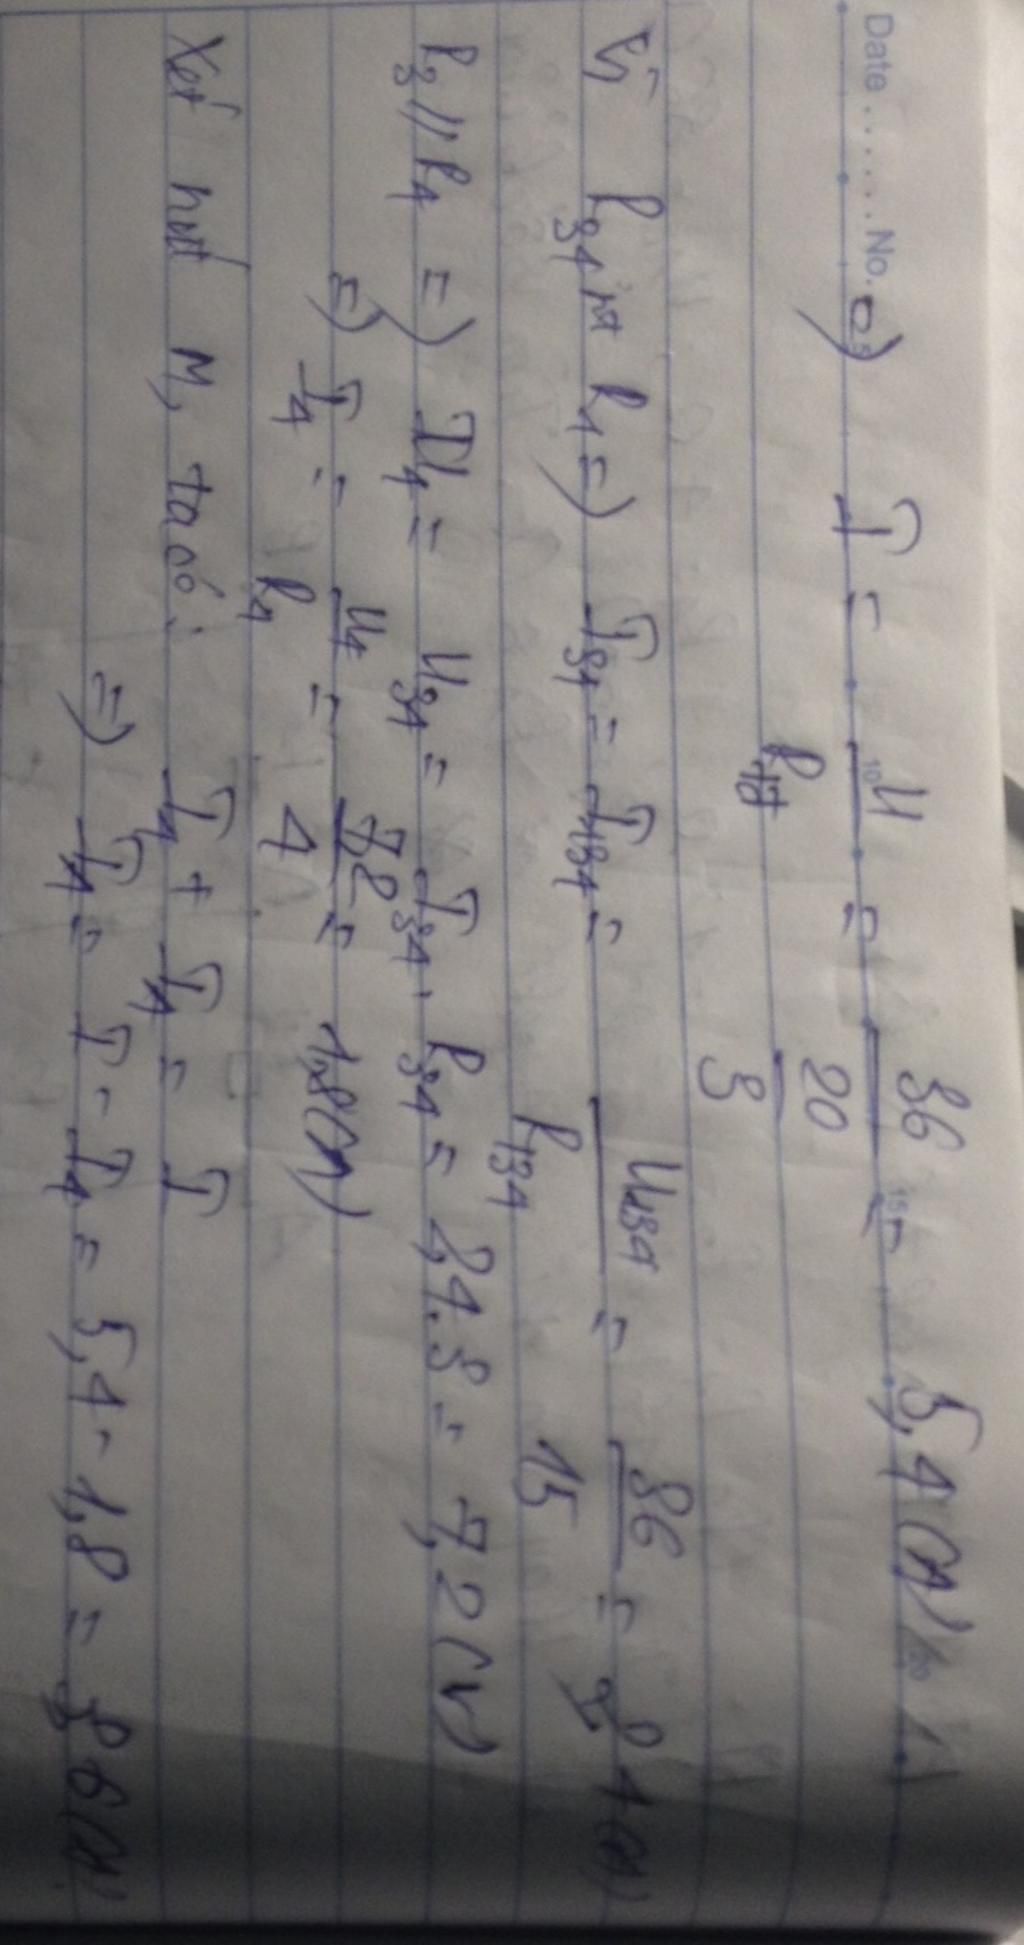 Date . . . . . . No.
5 10 15 20
b) I = U / R_tđ = 36 / (20/3) = 5,4 (A)
Vì R_34 nt R_1 => I_34 = I_134 = U_134 / R_134 = 36 / 15 = 2,4 (A)
R_3 // R_4 => U_4 = U_34 = I_34 . R_34 = 2,4.3 = 7,2 (V)
=> I_4 = U_4 / R_4 = 7,2 / 4 = 1,8(A)
Xét nút M, ta có: I_4 + I_A = I
=> I_A = I - I_4 = 5,4 - 1,8 = 3,6 (A)